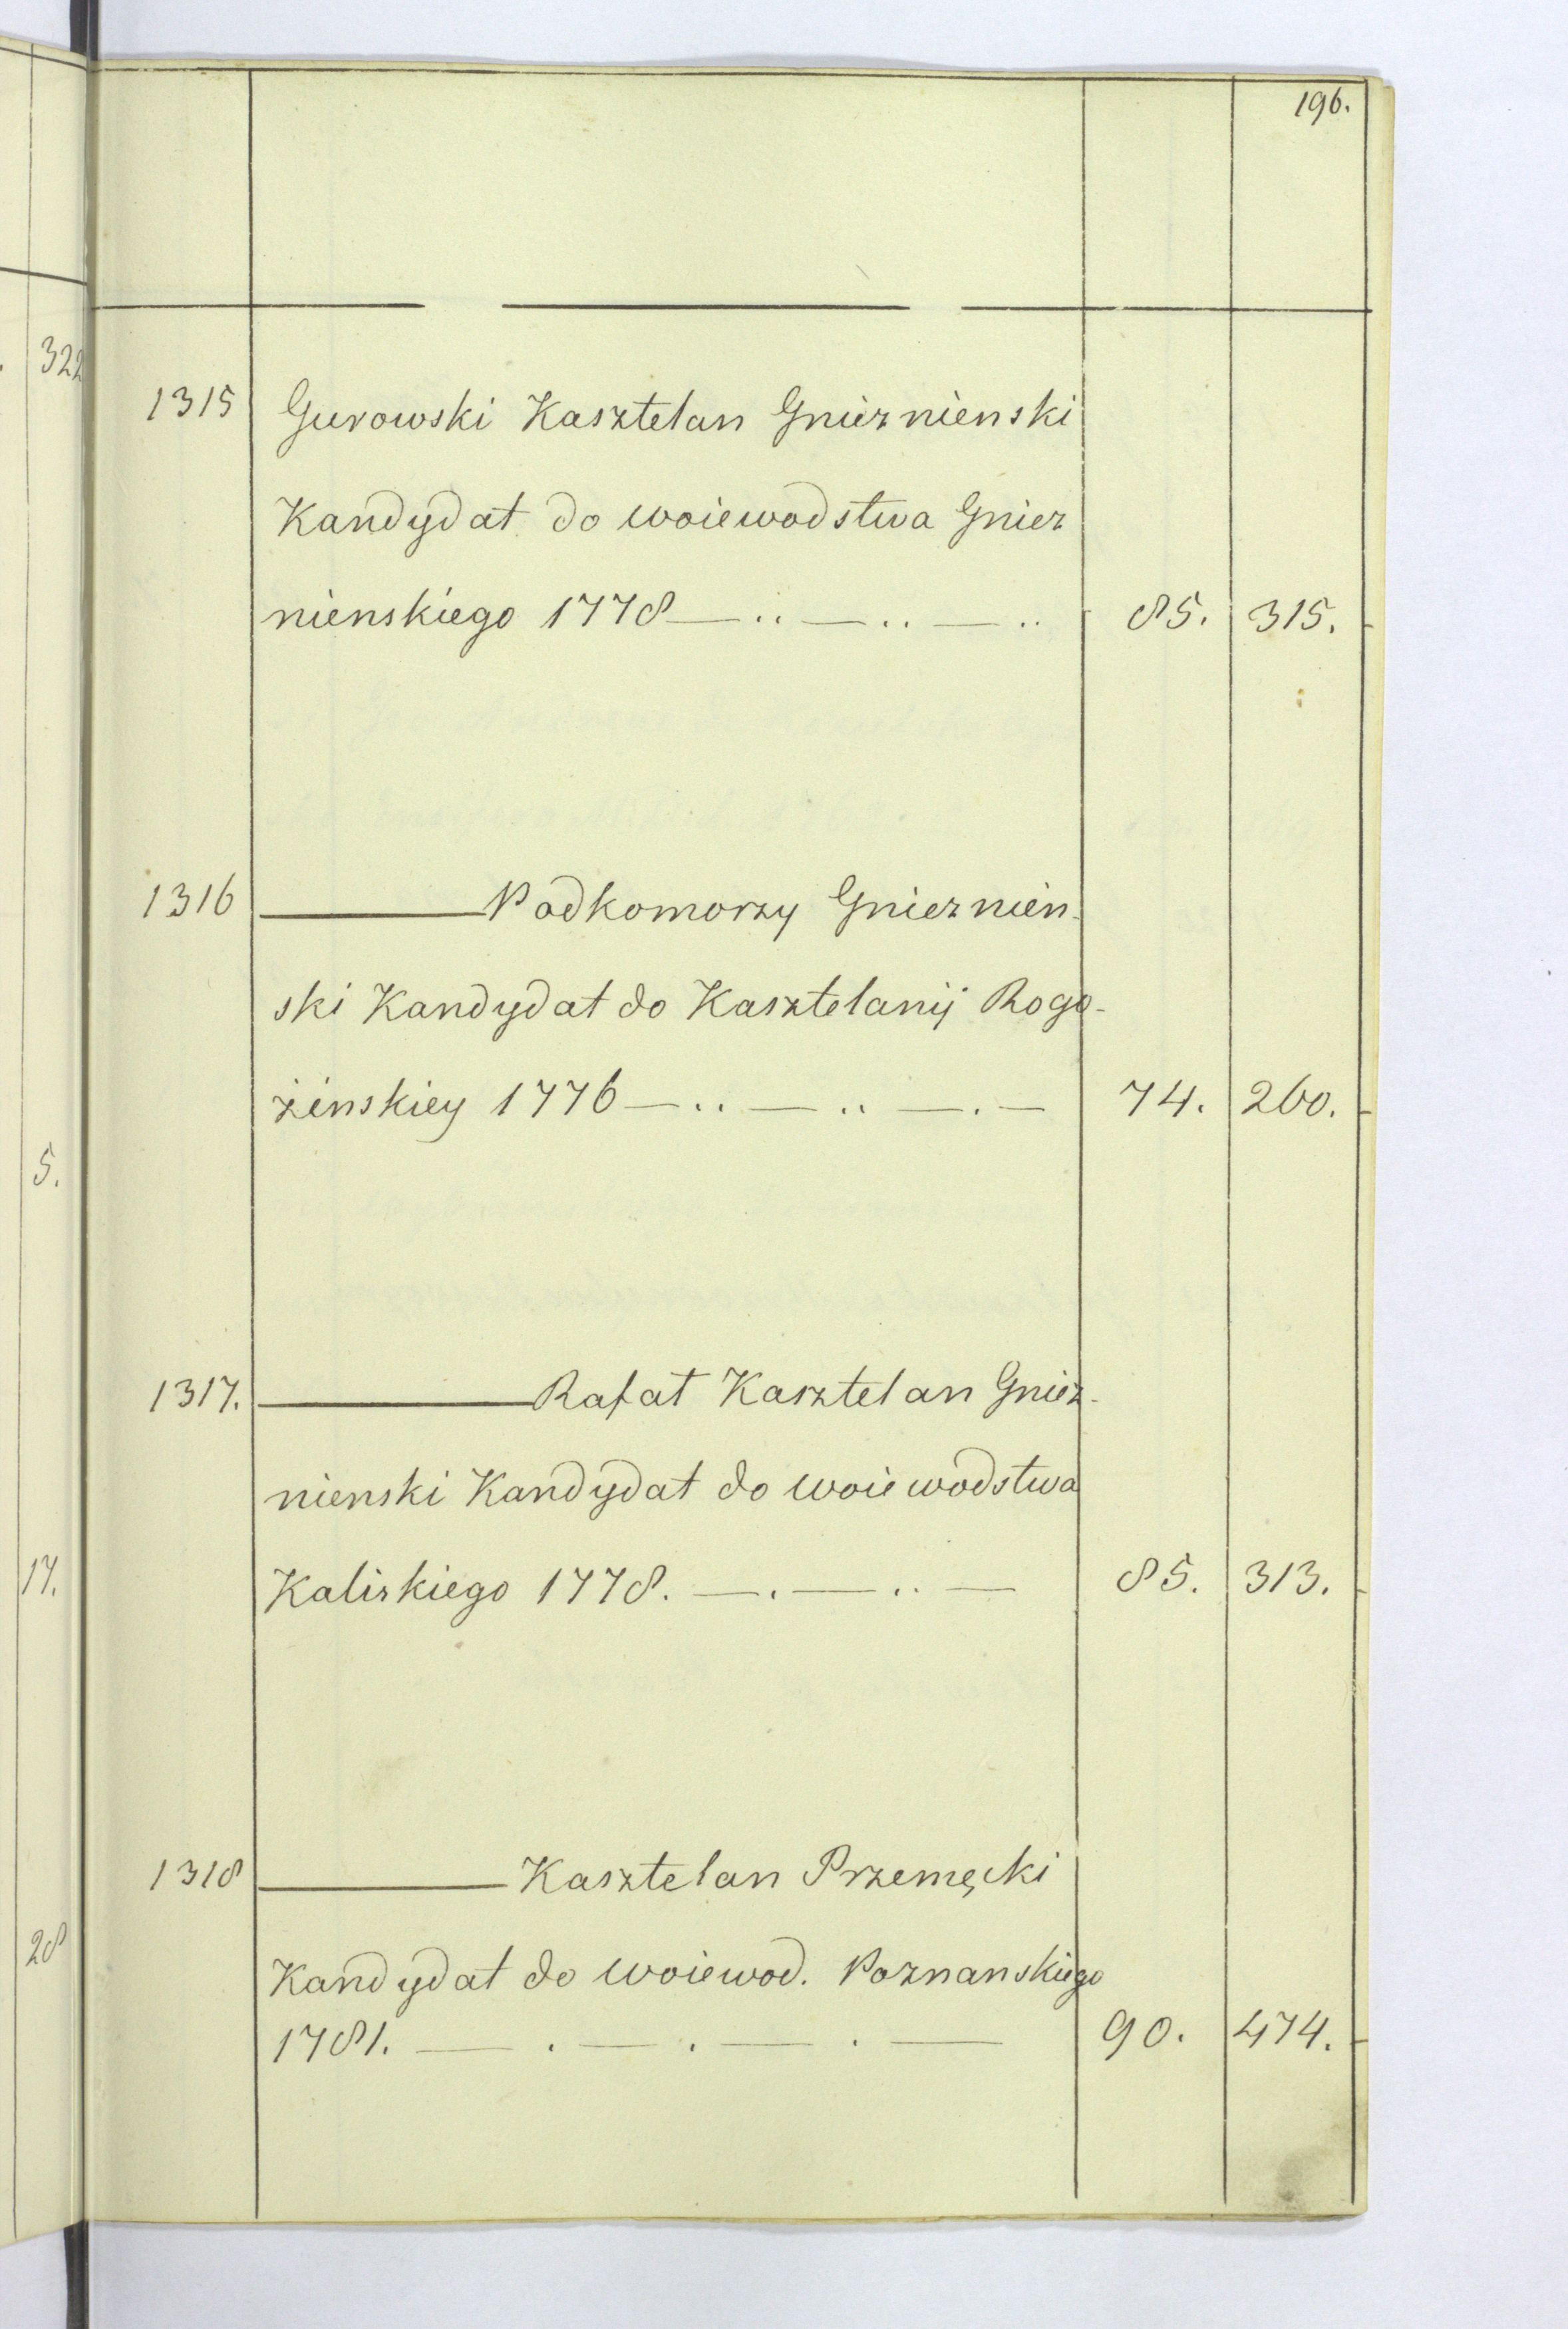 196.
322
1315 Gurowski Kasztelan Gnieznienski
Kandydat do woiewodstwa Gniez
nienskiego 1778 — .. — .. — .. 85. 315.
1316 ——— Podkomorzy Gnieznien-
ski Kandydat do Kasztelanij Rogo-
żinskiey 1776 — .. — .. — . — 74. 260.
5.
1317. ——— Rafał Kasztelan Gniez-
nienski Kandydat do woiewodstwa
17.
Kaliskiego 1778. — . — .. — 85. 313.
1318 ——— Kasztelan Przemęcki
28
Kandydat do woiewod. Poznanskiego
1781. — . — . — . — 90. 474.